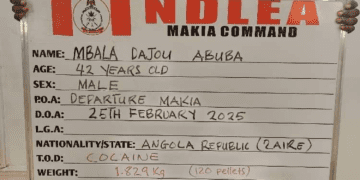 NDLEA
MAKIA COMMAND
NAME: MBALA DAJOU ABUBA
AGE: 42 YEARS OLD
SEX: MALE
P.O.A: DEPARTURE MAKIA
D.O.A: 25TH FEBRUARY 2025
L.G.A:
NATIONALITY/STATE: ANGOLA REPUBLIC (ZAIRE)
T.O.D: COCAINE
WEIGHT: 1.829Kg (120 pellets)